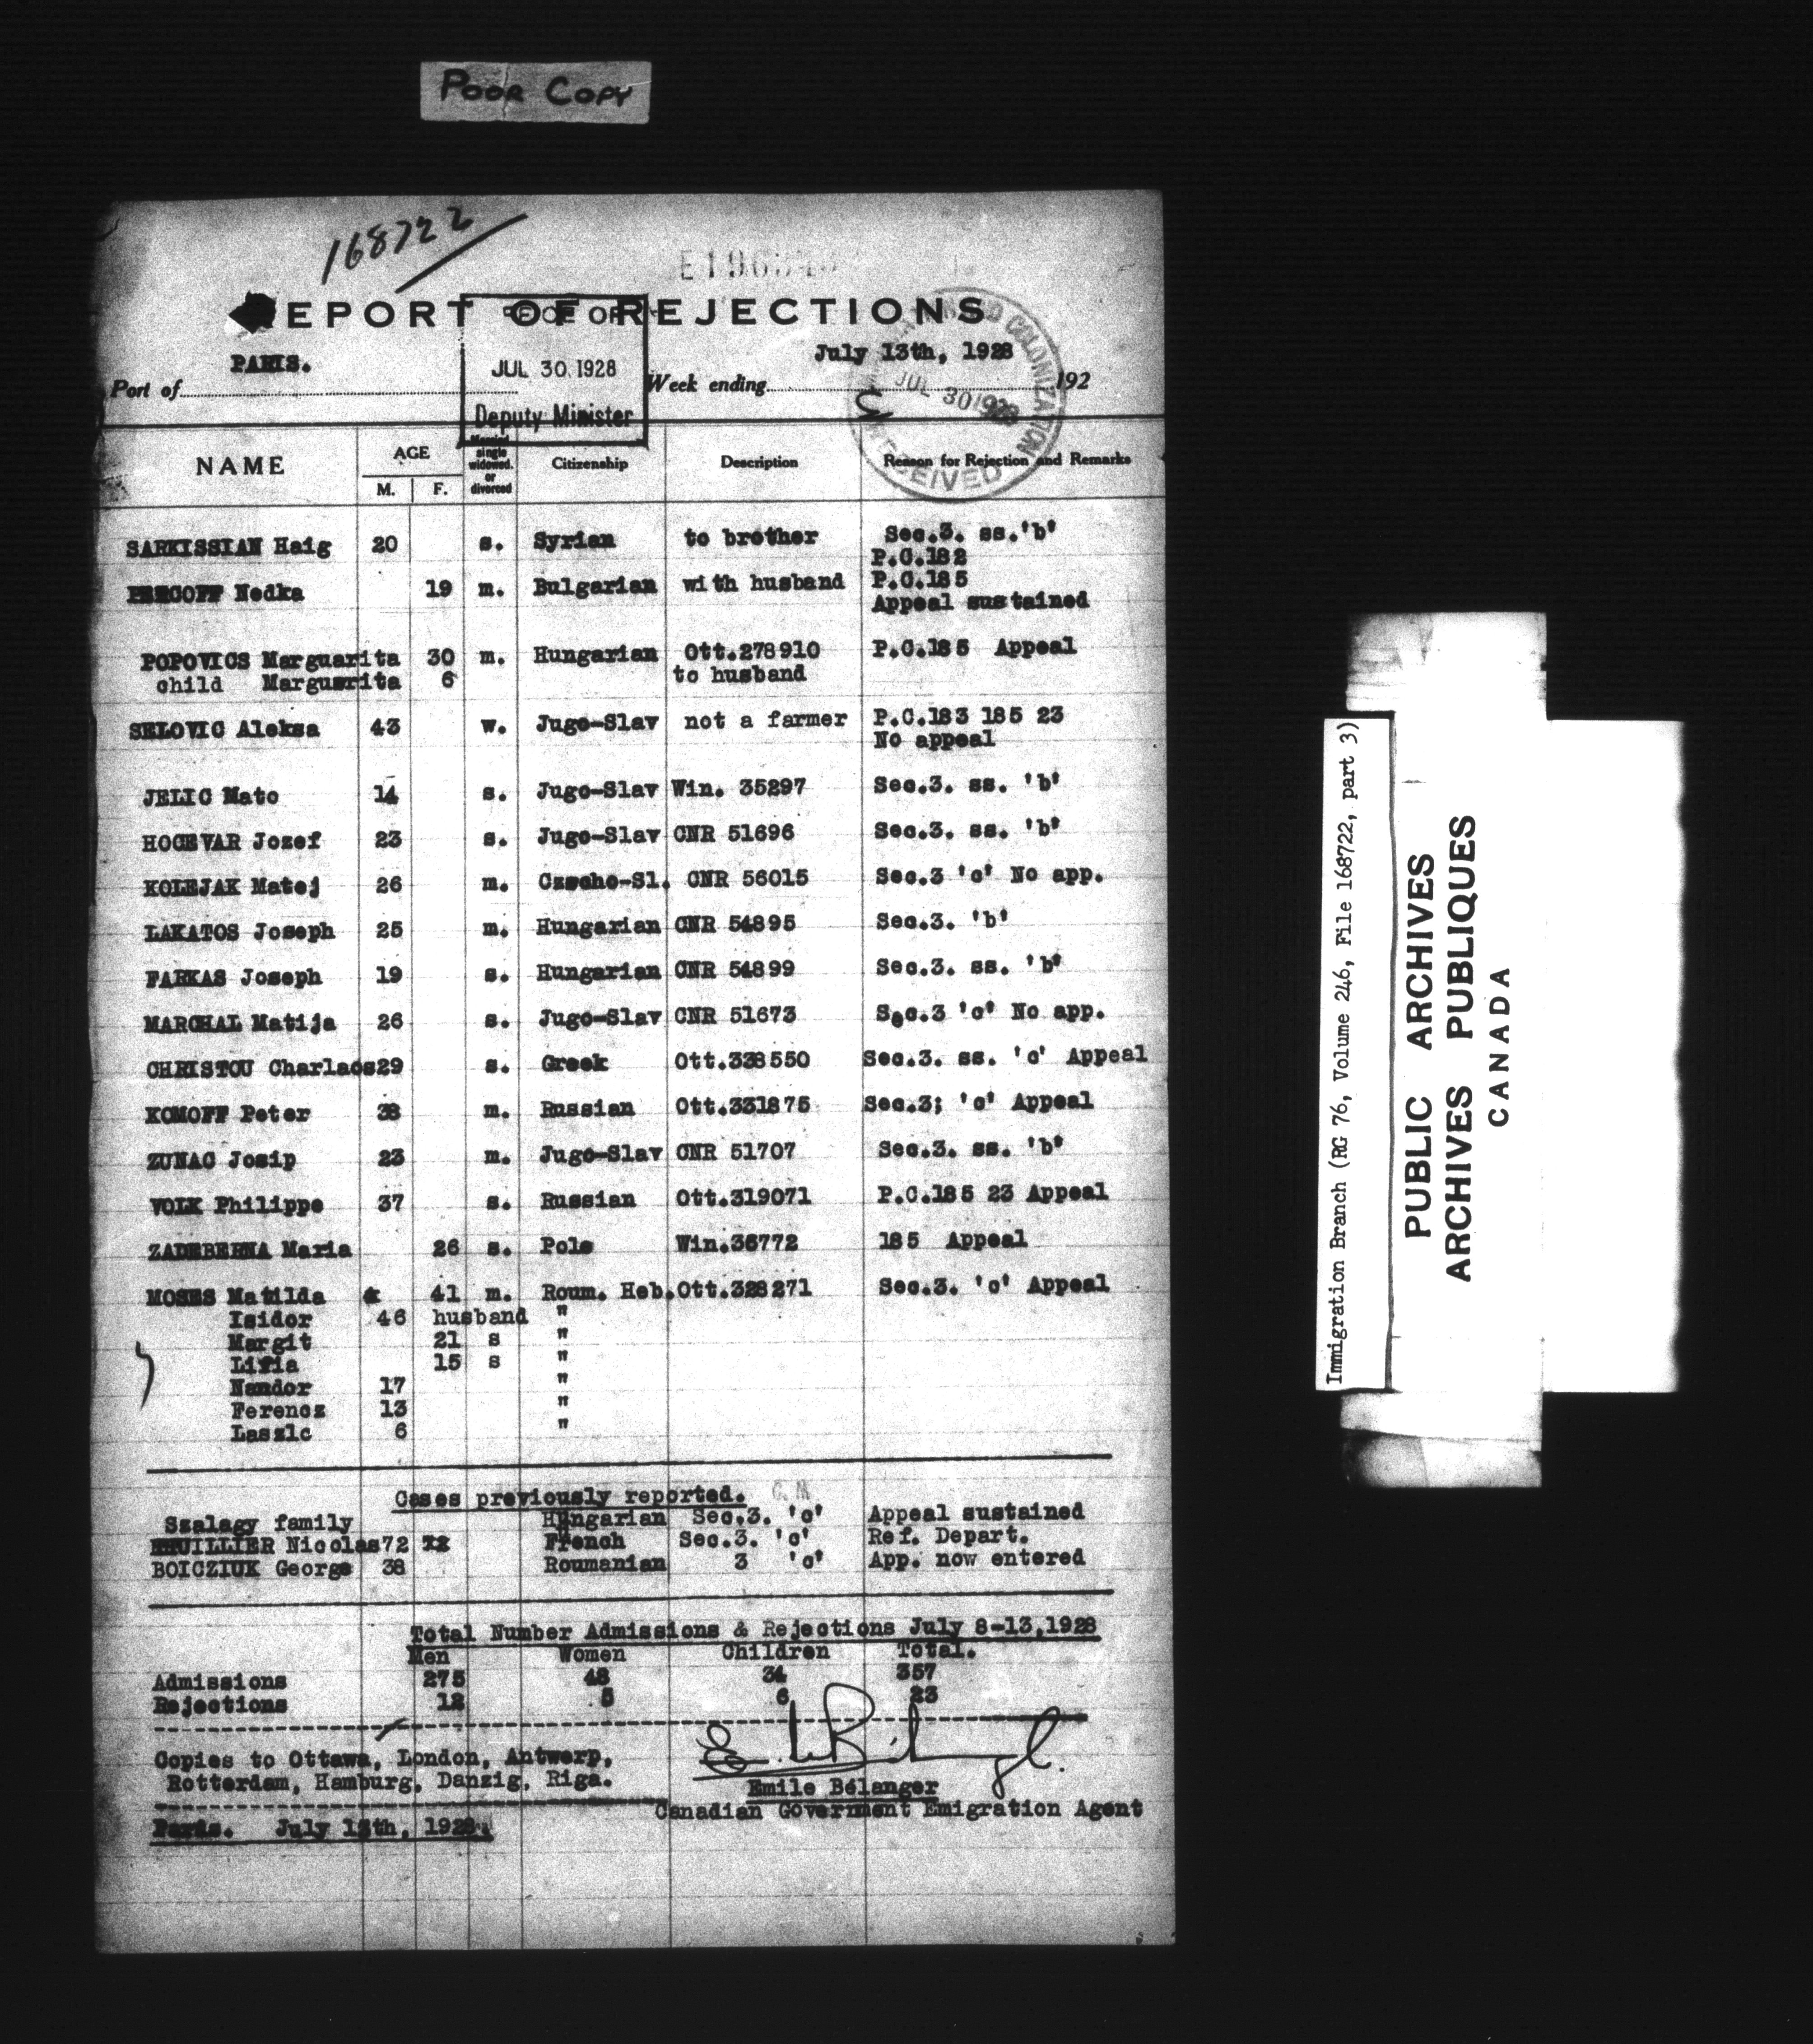 POOR COPY
168722
REPORT OF REJECTIONS
JUL 30 1928
Deputy Minister
PARIS.
July 13th, 1928
Port of
Week ending 192
JUL 30 1928
RECEIVED
NAME AGE Married single widowed. or divorced Citizenship Description Reason for Rejection and Remarks
M. F.
SARKISSIAN Haig 20 s. Syrian to brother Sec.3. ss.'b'
P.C.182
Nedka 19 m. Bulgarian with husband P.C.185
Appeal sustained
POPOVICS Marguarita 30 m. Hungarian Ott.278910 P.C.185 Appeal
child Marguarita 6 to husband
SELOVIC Aleksa 43 w. Jugo-Slav not a farmer P.C.183 185 23
No appeal
JELIC Mato 14 s. Jugo-Slav Win. 35297 Sec.3. ss. 'b'
HOCEVAR Jozef 23 s. Jugo-Slav CNR 51696 Sec.3. ss. 'b'
KOLEJAK Matej 26 m. Czecho-Sl. CNR 56015 Sec.3 'c' No app.
LAKATOS Joseph 25 m. Hungarian CNR 54895 Sec.3. 'b'
FARKAS Joseph 19 s. Hungarian CNR 54899 Sec.3. ss. 'b'
MARCHAL Matija 26 s. Jugo-Slav CNR 51673 Sec.3 'c' No app.
CHRISTOU Charlaos 29 s. Greek Ott.338550 Sec.3. ss. 'c' Appeal
KOMOFF Peter 38 m. Russian Ott.331875 Sec.3; 'c' Appeal
ZUNAC Josip 23 m. Jugo-Slav CNR 51707 Sec.3. ss. 'b'
VOLK Philippe 37 s. Russian Ott.319071 P.C.185 23 Appeal
ZADEBERNA Maria 26 s. Pole Win.36772 185 Appeal
MOSES Matilda & 41 m. Roum. Heb. Ott.328271 Sec.3. 'c' Appeal
Isidor 46 husband "
Margit 21 s "
Lifia 15 s "
Nandor 17 "
Ferencz 13 "
Laszlc 6 "
Cases previously reported. C.N
Szalagy family Hungarian Sec.3. 'c' Appeal sustained
Nicolas 72 French Sec.3. 'c' Ref. Depart.
BOICZIUK George 38 Roumanian 3 'c' App. now entered
Total Number Admissions & Rejections July 8-13,1928
Men Women Children Total.
Admissions 275 48 34 357
Rejections 12 5 6 23
Copies to Ottawa, London, Antwerp,
Rotterdam, Hamburg, Danzig, Riga.
Emile Bélanger
Canadian Goverment Emigration Agent
Paris. July 13th, 1928.
Immigration Branch (RG 76, Volume 246, File 168722, part 3)
PUBLIC ARCHIVES
ARCHIVES PUBLIQUES
CANADA